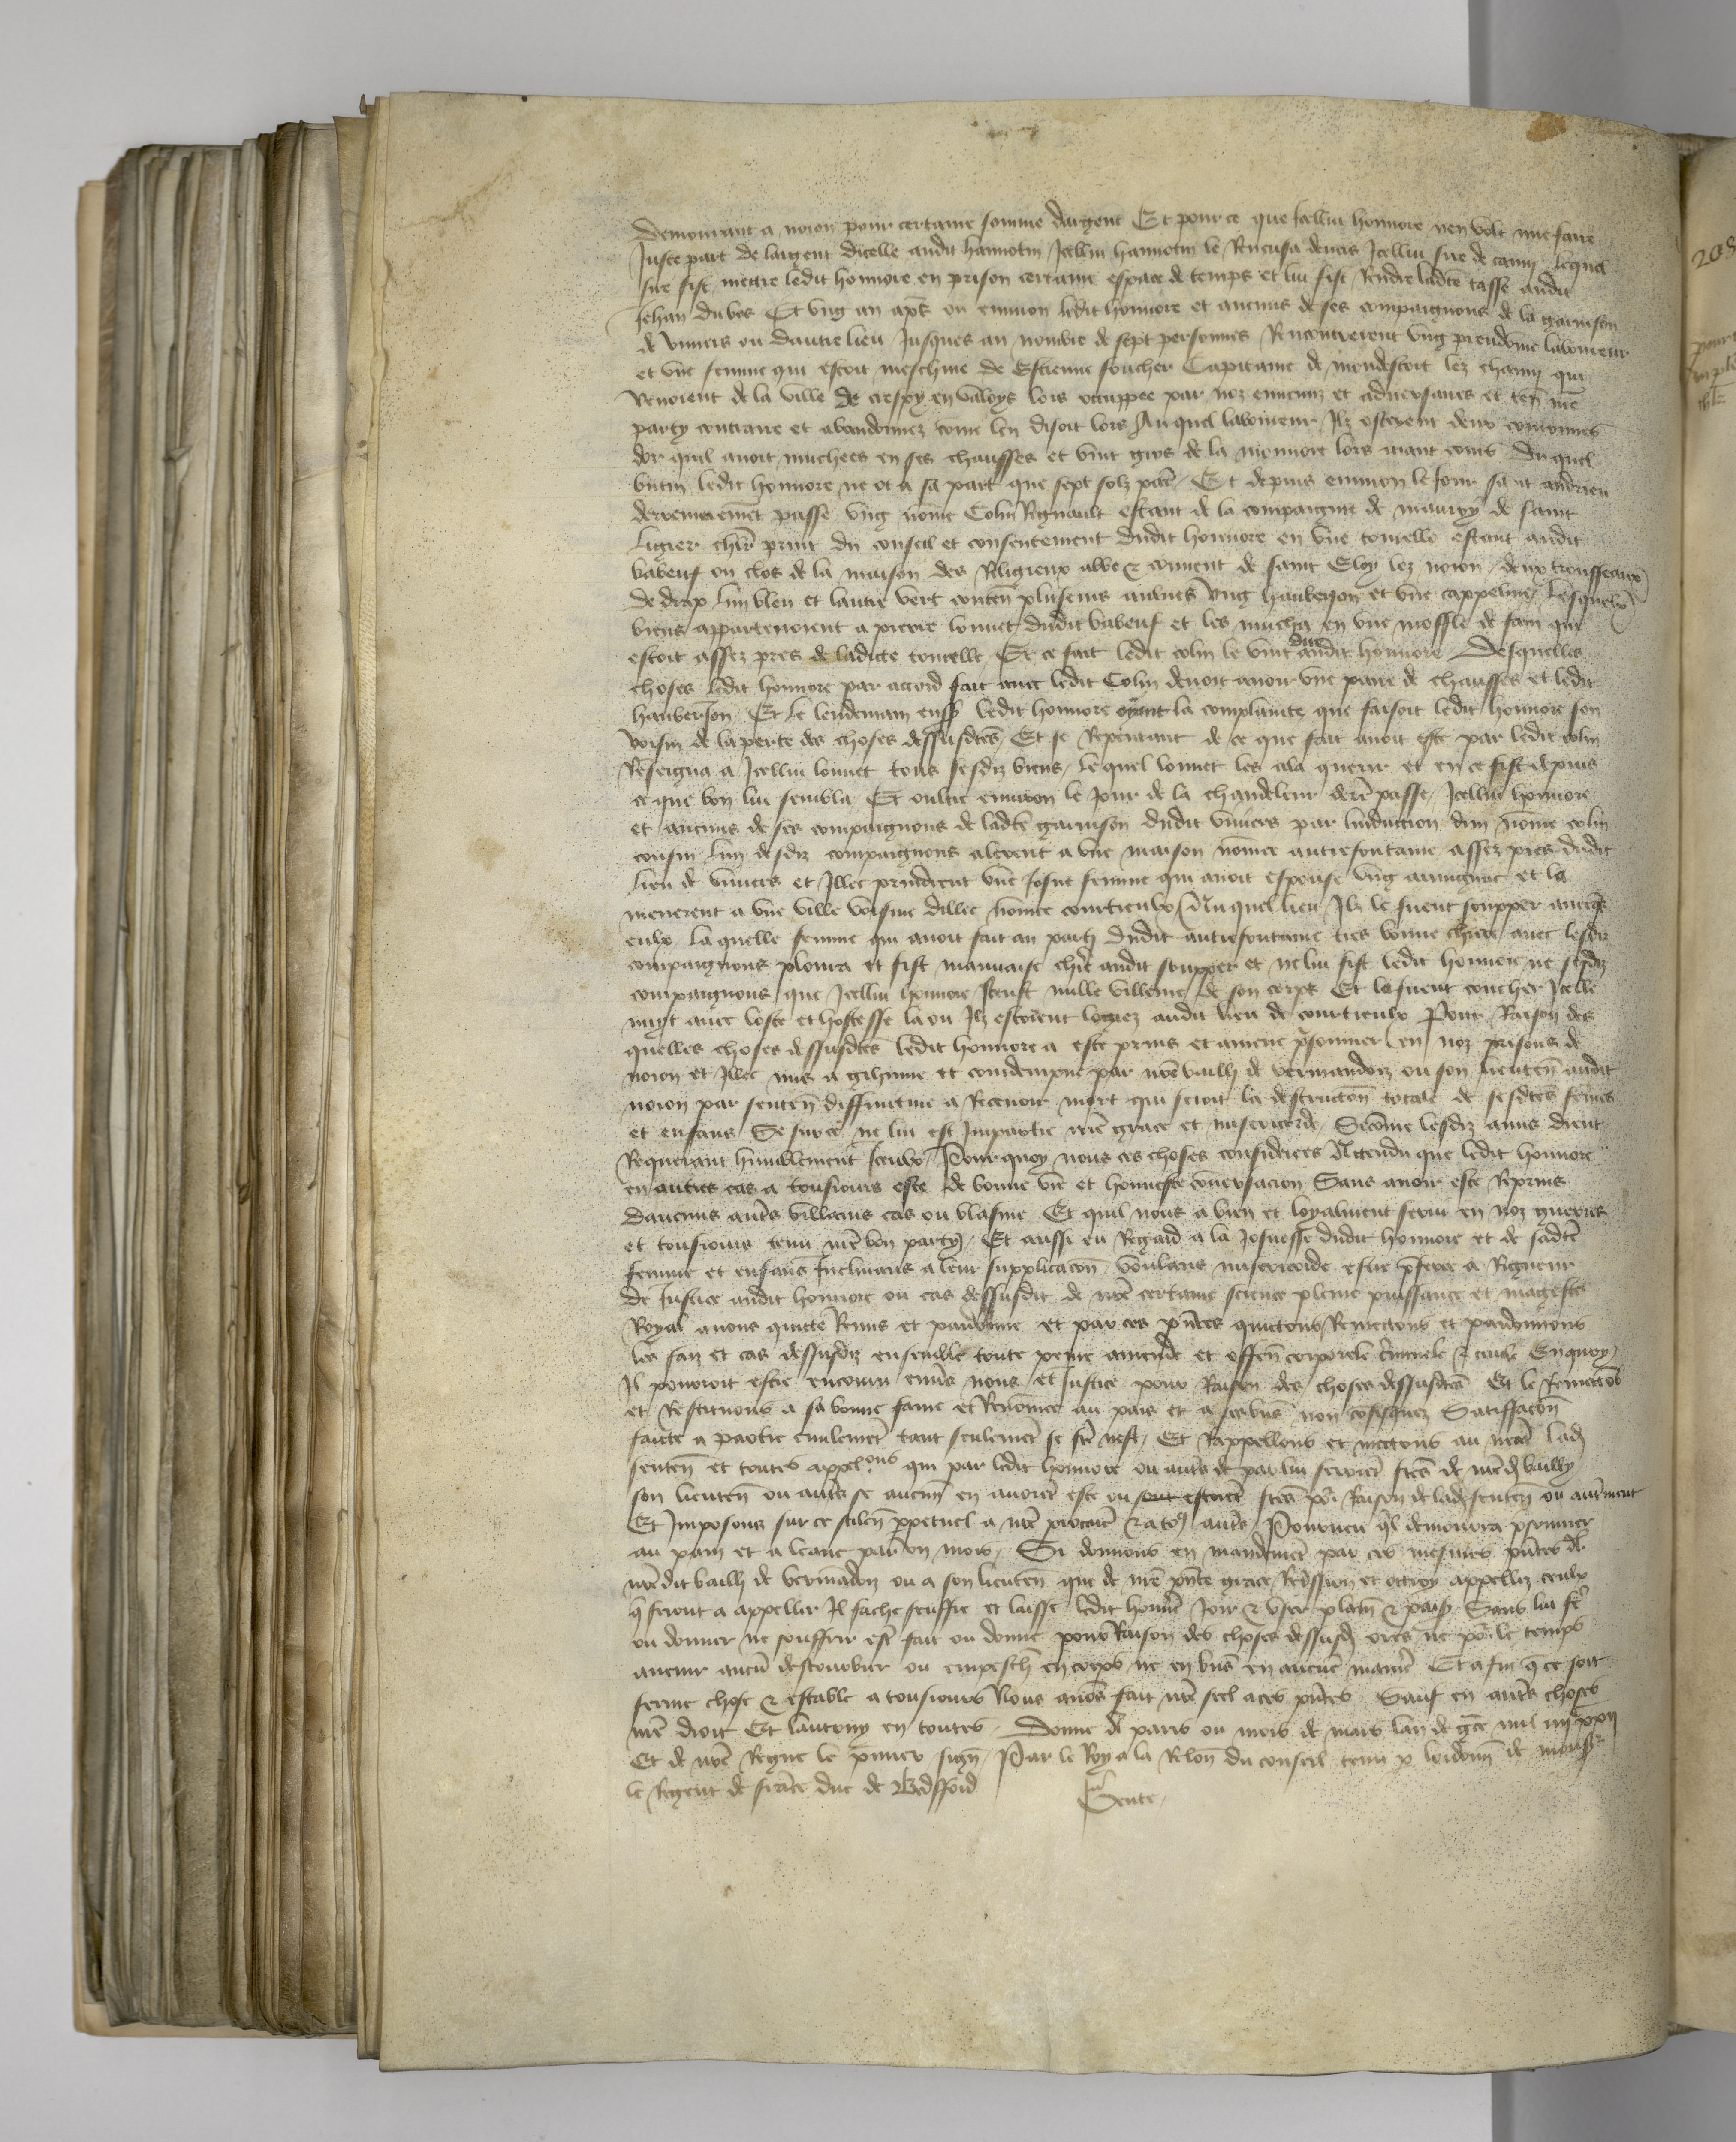 demourant a noion pour certaine somme dargent Et pource que icellui honnore nen volt mie faire
Juste part de largent dicelle audit hannotin Icellui hannotin le Encusa devers Icellui sire de cany lequel
sire fist mettre ledit honnore en prison certaine espace de temps et lui fist Rendre ladte tasse audit
Jehan du bos Et ung an aps ou environ ledit honnore et aucuns de ses compaignons de la garnison
de viviers ou dautre lieu Jusques au nombre de sept personnes Rencontrerent ung preudome laboureur
et une femme qui estoit meschine de Estienne foucher Capitaine de mondescoit lez chauny qui
venoient de la ville de crespy en valoys lors occuppee par noz ennemiz et adversaires et ten
party contraire et abandonnez come len disoit lors Auquel laboureur Ilz osterent deux couronnes
dor quil avoit muchees en ses chausses et vint gros de la monnoie lors aiant cours Du quel
butin ledit honnore ne ot a sa part que sept solz par Et depuis environ le Jour saint andrieu
derrenierement passe ung nome Colin Regnault estant de la compaignie de mauroy de saint
Ligier chlr print du conseil et consentement dudit honnore en une tourelle estant audit
babeuf ou clos de la maison des Religieux abbe & couvent de saint Eloy lez noion deux trousseaux
de drap lun bleu et lautre vert conten pluseurs aulnes ung haubergon et une cappeline Lesquelx
biens appartenoient a pierre lonnet dudit babeuf et les mucha en une moffle de fain qui
estoit assez pres de ladicte tourelle Et ce fait ledit colin le vint dire audit honnore Desquelles
choses ledit honnore par accord fait avec ledit Colin devoit avoir une paire de chausses et ledit
haubergon Et le lendemain ensg ledit honnore oyant la complainte que faisoit ledit honnore son
voisin de la perte des choses dessusdtes Et se Repentant de ce que fait avoit este par ledit colin
Renseigna a Icellui lonnet tous sesdiz biens Lequel lonnet les ala querir et en ce fist depuis
ce que bon lui sembla Et oultre environ le Jour de la chandeleur dere passe Icellui honnore
et aucuns de ses compaignons de ladte garnison dudit viviers par linduction dun nome colin
cousin lun desdiz compaignons alerent a une maison nomee autrefontaine assez pres dudit
lieu de viviers et Illec prindrent une Josne femme qui avoit espouse ung armignac et la
menerent a une ville voisine dillec nomee courtieulx Auquel lieu Ilz le firent soupper avecqs
eulx Laquelle femme qui avoit fait au partir dudit autrefontaine tres bonne chiere avec lesdiz
compaignons ploura et fist mauvaise chiere audit soupper et ne lui fist ledit honnore ne sesdiz
compaignons que Icellui honnore sceust nulle villenie de son corps Et le firent coucher Icelle
nuyt avec loste et hostesse la ou Ilz estoient logiez audit lieu de courtieulx Pour Raison des
quelles choses dessusdtes ledit honnore a este prins et amene prisonnier en noz prisons de
noion et Illec mis a gehinne et condempne par nre bailli de vermandoiz ou son lieuten audit
noion par senten diffinitive a Recevoir mort qui seroit la destruction totale de sesdtes femme
et enfans Se sur ce ne lui est Impartie nre grace et misericorde Sicome lesdiz amis dient
Requerant humblement Iceulx Pourquoy nous ces choses considerees Attendu que ledit honnore
en autres cas a tousiours este de bonne vie et honneste conversacion Sans avoir este Reprins
daucuns autrs villains cas ou blasme Et quil nous a bien et loyalment servi en noz guerres
et tousiours tenu nre bon party Et aussi eu Regard a la Josnesse dudit honnore et de sadte
femme et enfans Inclinans a leur supplicacon voulans misericorde estre pferee a Rigueur
de Justice audit honnore ou cas dessusdit de nre certaine science pleine puissance et mageste
Royal avons quicte Remis et pardonne et par ces pntes quictons Remectons et pardonnons
les faiz et cas dessusdiz ensemble toute peine amende et offen corporele criminele & civile En quoy
Il pourroit estre encouru envs nous et Justice pour Raison des choses dessusdtes Et le Remectos
et Restituons a sa bonne fame et Renomee au pais et a ses bns non cosisquez Satiffacon
faicte a partie civilemet tant seulemet se fte nest Et Rappellons et mectons au neant lad
senten et toutes appelons qui par ledit honnore ou autrs de par lui seroiet ftes de nred bailly
son lieuten ou autrs se aucun en avoiet este ou sont estoiet ftes po Raison de lad senten ou autrment
Et Imposons sur ce silen ppetuel a nre procur & a to autrs Pourveu ql demourra psonnier
au pain et a leaue par un mois Si donnons en mandemet par ces mesmes pntes de
nredit bailli de vermandoz ou a son lieuten que de nre pnte grace Remission et ottroy appellez ceulx
q feront a appeller Il sache seuffre et laisse ledit honnore Joir & user plain & paisi Sans lui fe
ou donner ne souffrir est fait ou donne pour Raison des choses dessusd ores ne po le temps
avenir aucun destourbier ou empesch en corps ne en bns en aucue maniere Et afin q ce soit
ferme chose & estable a tousiours Nous avos fait mre seel a ces pntes Sauf en autrs choses
nre droit Et lautruy en toutes Donne de paris ou mois de mars lan de gce mil iiijc xxij
Et de nre Regne le pmier sign Par le Roy a la Relon du conseil tenu p lordonn de monsr
le Regent de france duc de Bedfford Gente